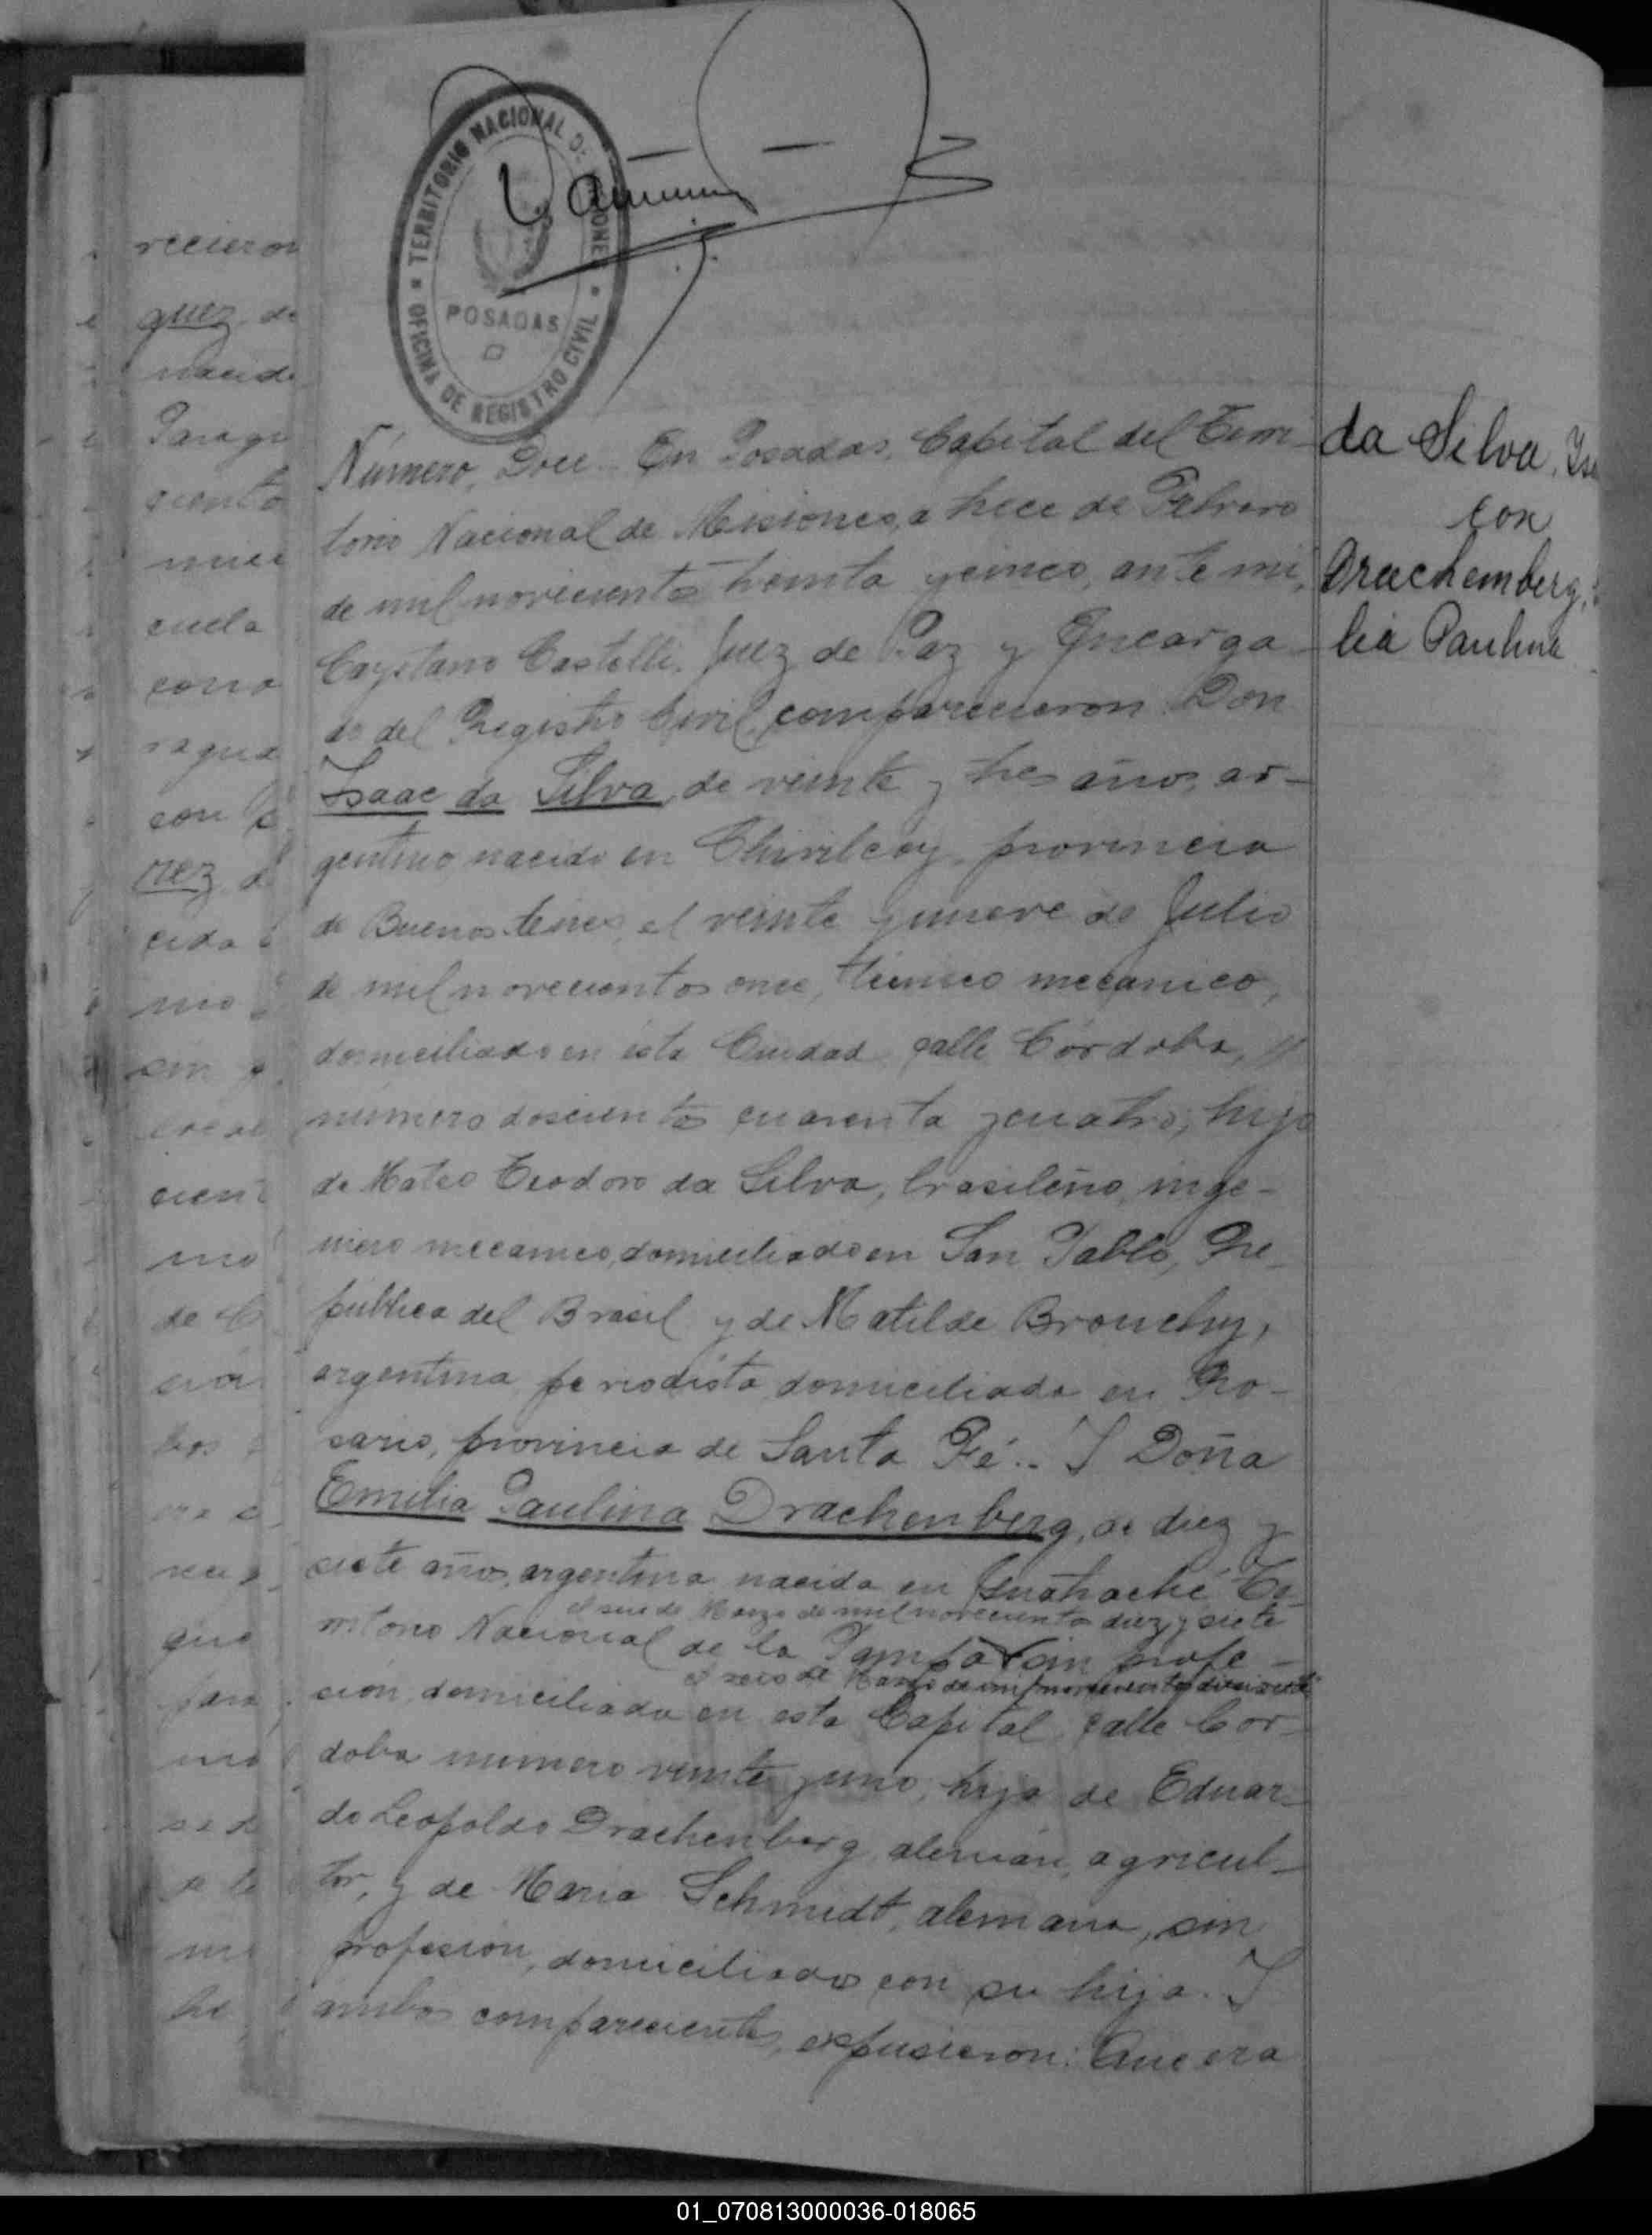 TERRITORIO NACIONAL DE MISIONES
POSADAS
OFICINA DE REGISTRO CIVIL
Número, Doce.. En Posadas, Capital del Terri-
torio Nacional de Misiones, a trece de Febrero
de mil novecientos treinta y cinco, ante mi,
Cayetano Castelli, Juez de Paz y Encarga-
do del Registro Civil, comparecieron: Don
Isaac da Silva, de veinte y tres años, ar-
gentino, nacido en Chivilcoy, provincia
de Buenos Aires, el veinte y nueve de Julio
de mil novecientos once, técnico mecanico,
domiciliado en ésta Ciudad calle Córdoba,
número doscientos cuarenta y cuatro, hijo
de Mateo Teodoro da Silva, brasileño, inge-
niero mecanico, domiciliado en San Pablo, Re-
pública del Brasil y de Matilde Brouchy,
argentina, periodista, domiciliada en Ro-
sario, provincia de Santa Fé.. Y Doña
Emilia Paulina Drachenberg, de diez y
siete años, argentina nacida en Guatraché Te-
el seis de Marzo de mil novecientos diez y siete
rritorio Nacional de la Pampa sin profe-
el seis de Marzo de mil novecientos diecisiete
sión, domiciliada en esta Capital, calle Cór-
doba numero veinte y uno, hija de Eduar-
do Leopoldo Drachenberg, alemán, agricul-
tor, y de Maria Schmidt, alemana, sin
profesión, domiciliados con su hija. Y
ambos comparecientes, expusieron: Que era
da Silva, Isa
con
Drachemberg,
lia Paulina
recieron
quez, de
nacido
Parag
ciento
cuela
ragua
con
rez, d
cida
sin
cien
de C
que
para
01_070813000036-018065